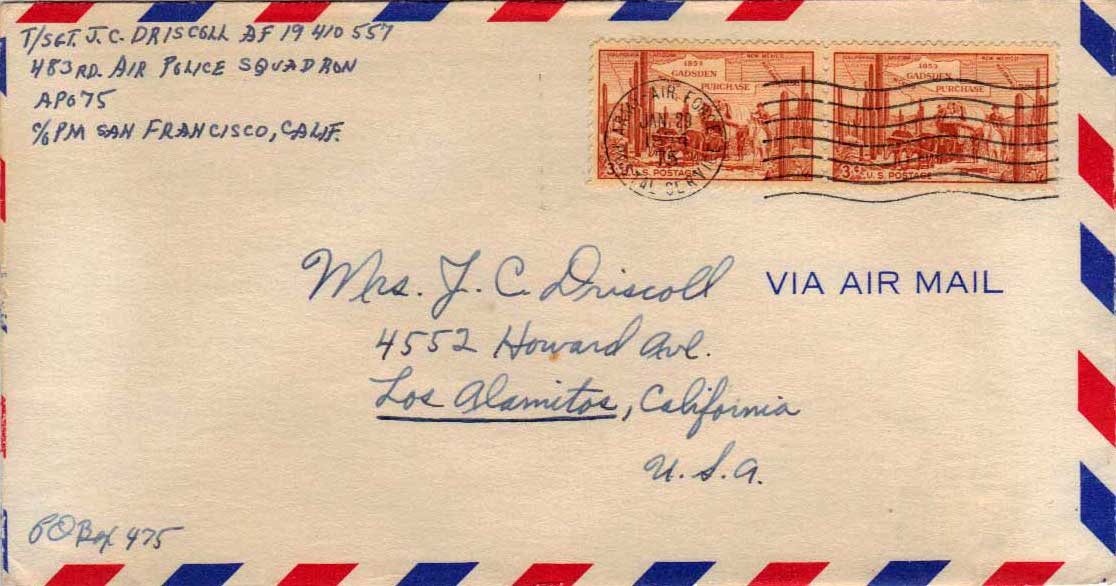 T/SGT. J. C. DRISCOLL AF 19 410 557
483RD. AIR POLICE SQUADRON
APO 75
c/o PM SAN FRANCISCO, CALIF.
CALIFORNIA ARIZONA NEW MEXICO
1853
GADSDEN
PURCHASE
3¢ U.S. POSTAGE
CALIFORNIA ARIZONA NEW MEXICO
1853
GADSDEN
PURCHASE
3¢ U.S. POSTAGE
ARMY-AIR FORCE POSTAL SERVICE
JAN 29
75
Mrs. J. C. Driscoll
VIA AIR MAIL
4552 Howard Ave.
Los Alamitos, California
U.S.A.
PO Box 475